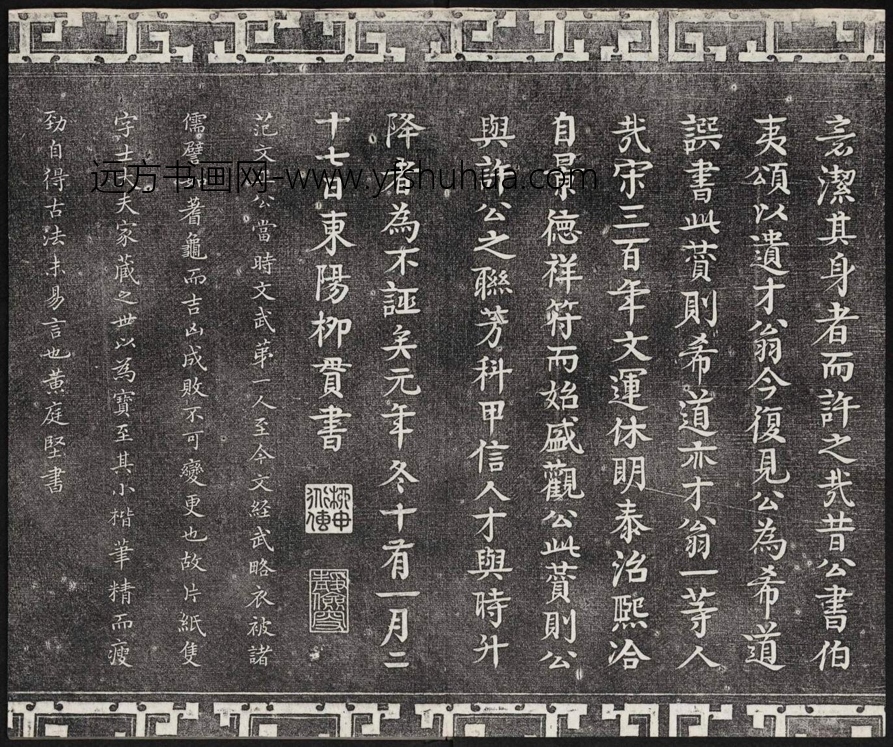 潔其身者而許之哉昔公書伯
夷頌以遺才翁今復見公為希道
譔書此贊則希道亦才翁一等人
哉宋三百年文運休明泰治熙洽
自景德祥符而始盛觀公此贊則公
與許公之聯芳科甲信人才與時升
降者為不誣矣元年冬十有一月二
十七日東陽柳貫書
范文正公當時文武苐一人至今文経武略衣被諸
儒譬如蓍龜而吉凶成敗不可變更也故片紙隻
字士大夫家藏之世以為寶至其小楷筆精而瘦
勁自得古法未易言也黃庭堅書
远方书画网-www.yfshuhua.com